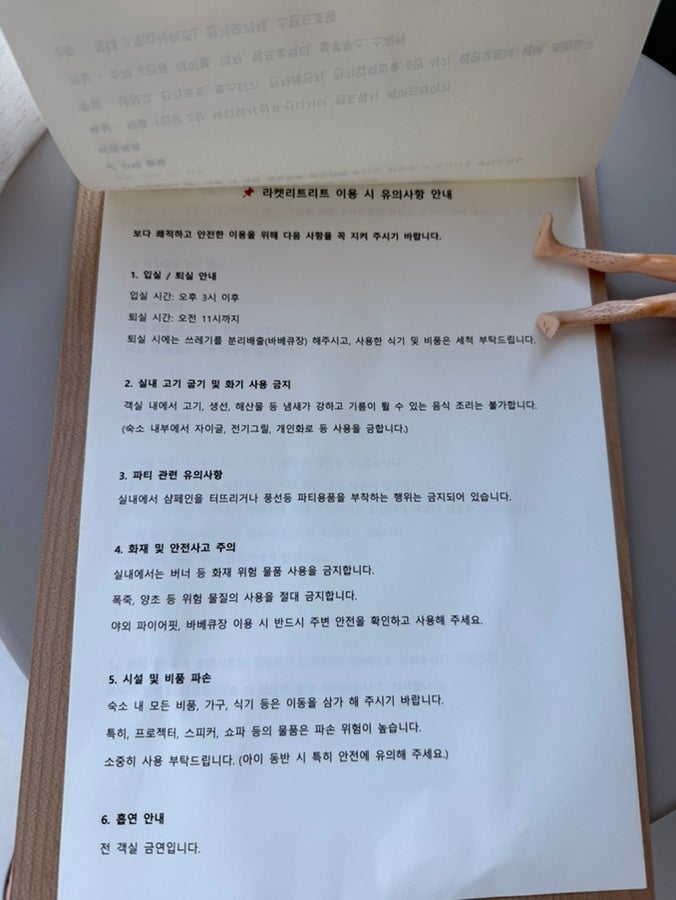 📌 라켓리트리트 이용 시 유의사항 안내
보다 쾌적하고 안전한 이용을 위해 다음 사항을 꼭 지켜 주시기 바랍니다.
1. 입실 / 퇴실 안내
입실 시간: 오후 3시 이후
퇴실 시간: 오전 11시까지
퇴실 시에는 쓰레기를 분리배출(바베큐장) 해주시고, 사용한 식기 및 비품은 세척 부탁드립니다.
2. 실내 고기 굽기 및 화기 사용 금지
객실 내에서 고기, 생선, 해산물 등 냄새가 강하고 기름이 튈 수 있는 음식 조리는 불가합니다.
(숙소 내부에서 자이글, 전기그릴, 개인화로 등 사용을 금합니다.)
3. 파티 관련 유의사항
실내에서 샴페인을 터뜨리거나 풍선등 파티용품을 부착하는 행위는 금지되어 있습니다.
4. 화재 및 안전사고 주의
실내에서는 버너 등 화재 위험 물품 사용을 금지합니다.
폭죽, 양초 등 위험 물질의 사용을 절대 금지합니다.
야외 파이어핏, 바베큐장 이용 시 반드시 주변 안전을 확인하고 사용해 주세요.
5. 시설 및 비품 파손
숙소 내 모든 비품, 가구, 식기 등은 이동을 삼가 해 주시기 바랍니다.
특히, 프로젝터, 스피커, 쇼파 등의 물품은 파손 위험이 높습니다.
소중히 사용 부탁드립니다. (아이 동반 시 특히 안전에 유의해 주세요.)
6. 흡연 안내
전 객실 금연입니다.